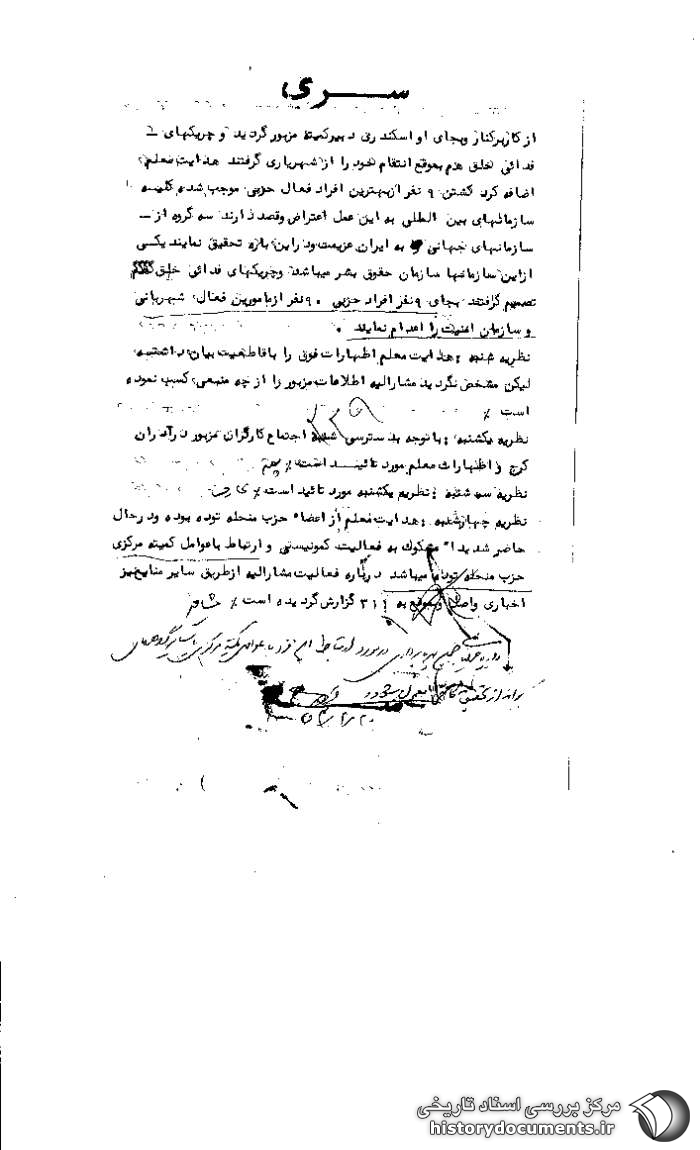 سری
از کار برکنار وبجای او اسکندری دبیرکمیته مزبور گردید و چریکهای
فدائی خلق هم بموقع انتقام خود را از شهریاری گرفتند هدایت معلم
اضافه کرد کشتن ۹ نفر از بهترین افراد فعال حزبی موجب شده کلیه
سازمانهای بین المللی به این عمل اعتراض وقصد دارند سه گروه از
سازمانهای جهانی به ایران عزیمت ودراین باره تحقیق نمایند یکی
ازاین سازمانها سازمان حقوق بشر میباشد وچریکهای فدائی خلق
تصمیم گرفتند بجای ۹ نفر افراد حزبی ۹۰ نفر ازمامورین فعال شهربانی
و سازمان امنیت را اعدام نمایند .
نظریه شنبه : هدایت معلم اظهارات فوق را باقاطعیت بیان داشته
لیکن مشخص نگردید مشارالیه اطلاعات مزبور را از چه منبعی کسب نموده
است %
نظریه یکشنبه : باتوجه بدسترسی شنبه اجتماع کارگران مزبور درآذران
کرج و اظهارات معلم مورد تائید است %
نظریه سه شنبه : نظریه یکشنبه مورد تائید است %
نظریه چهارشنبه : هدایت معلم از اعضاء حزب منحله توده بوده ودرحال
حاضر شدیدا" مشکوک به فعالیت کمونیستی و ارتباط باعوامل کمیته مرکزی
حزب منحله توده میباشد درباره فعالیت مشارالیه ازطریق سایر منابع نیز
اخباری واصل و بموقع به ۳۱۱ گزارش گردیده است %
مرکز بررسی اسناد تاریخی
historydocuments.ir